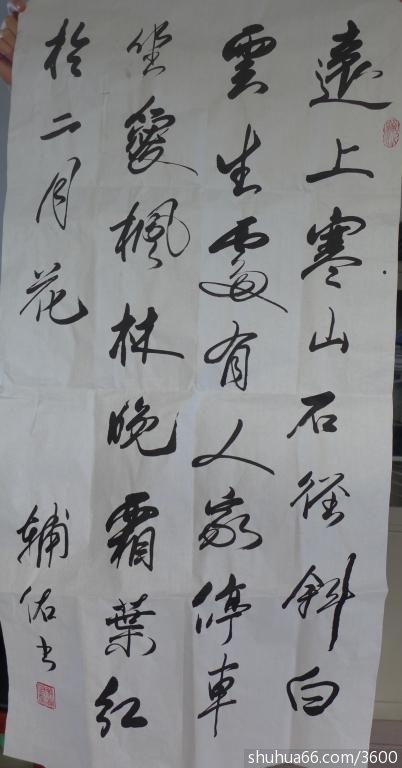 遠上寒山石徑斜白
雲生處有人家停車
坐愛楓林晚霜葉紅
於二月花
輔佑书
shuhua66.com/3600